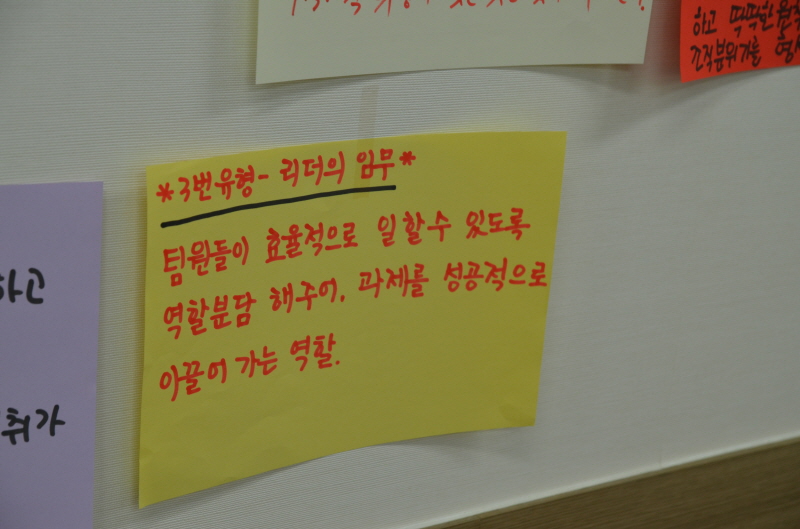 하고 딱딱한
분위기를
*3번유형- 리더의 임무*
팀원들이 효율적으로 일할수 있도록
역할분담 해주어, 과제를 성공적으로
이끌어 가는 역할.
하고
취가